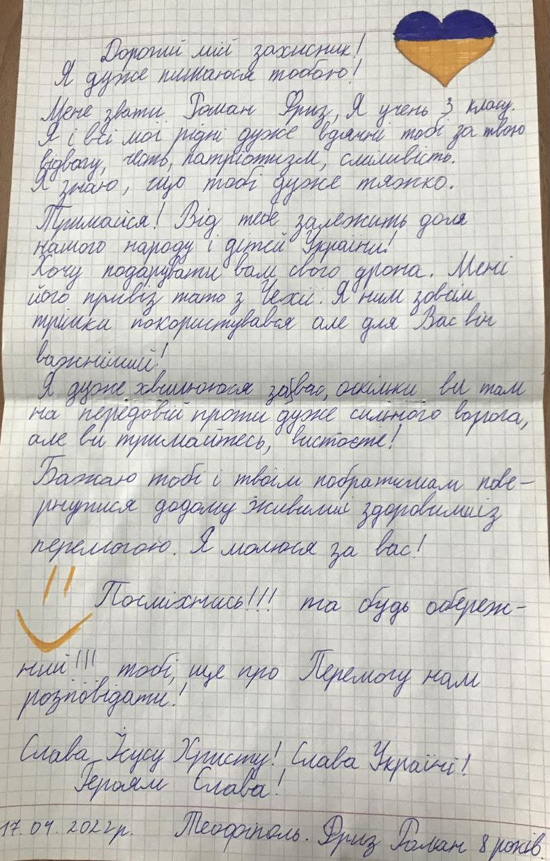 Дорогий мій захисник!
Я дуже пишаюся тобою!
Мене звати Роман Дриз, Я учень 3 класу.
Я і всі мої рідні дуже вдячні тобі за твою
відвагу, честь, патріотизм, сміливість.
Я знаю, що тобі дуже тяжко.
Тримайся! Від тебе залежить доля
нашого народу і дітей України!
Хочу подарувати вам свого дрона. Мені
його привіз тато з Чехії. Я ним зовсім
трішки покористувався але для Вас він
важніший!
Я дуже хвилююся за вас, оскільки ви там
на передовій проти дуже сильного ворога,
але ви тримайтесь, вистоєте!
Бажаю тобі і твоїм побратимам пове-
рнутися додому живими здоровими із
перемогою. Я молюся за вас!
Посміхнись!!! та будь обереж-
ний!!! тобі, ще про Перемогу нам
розповідати!
Слава Ісусу Христу! Слава Україні!
Героям Слава!
17.04.2022р. Теофіполь. Дриз Роман 8 років